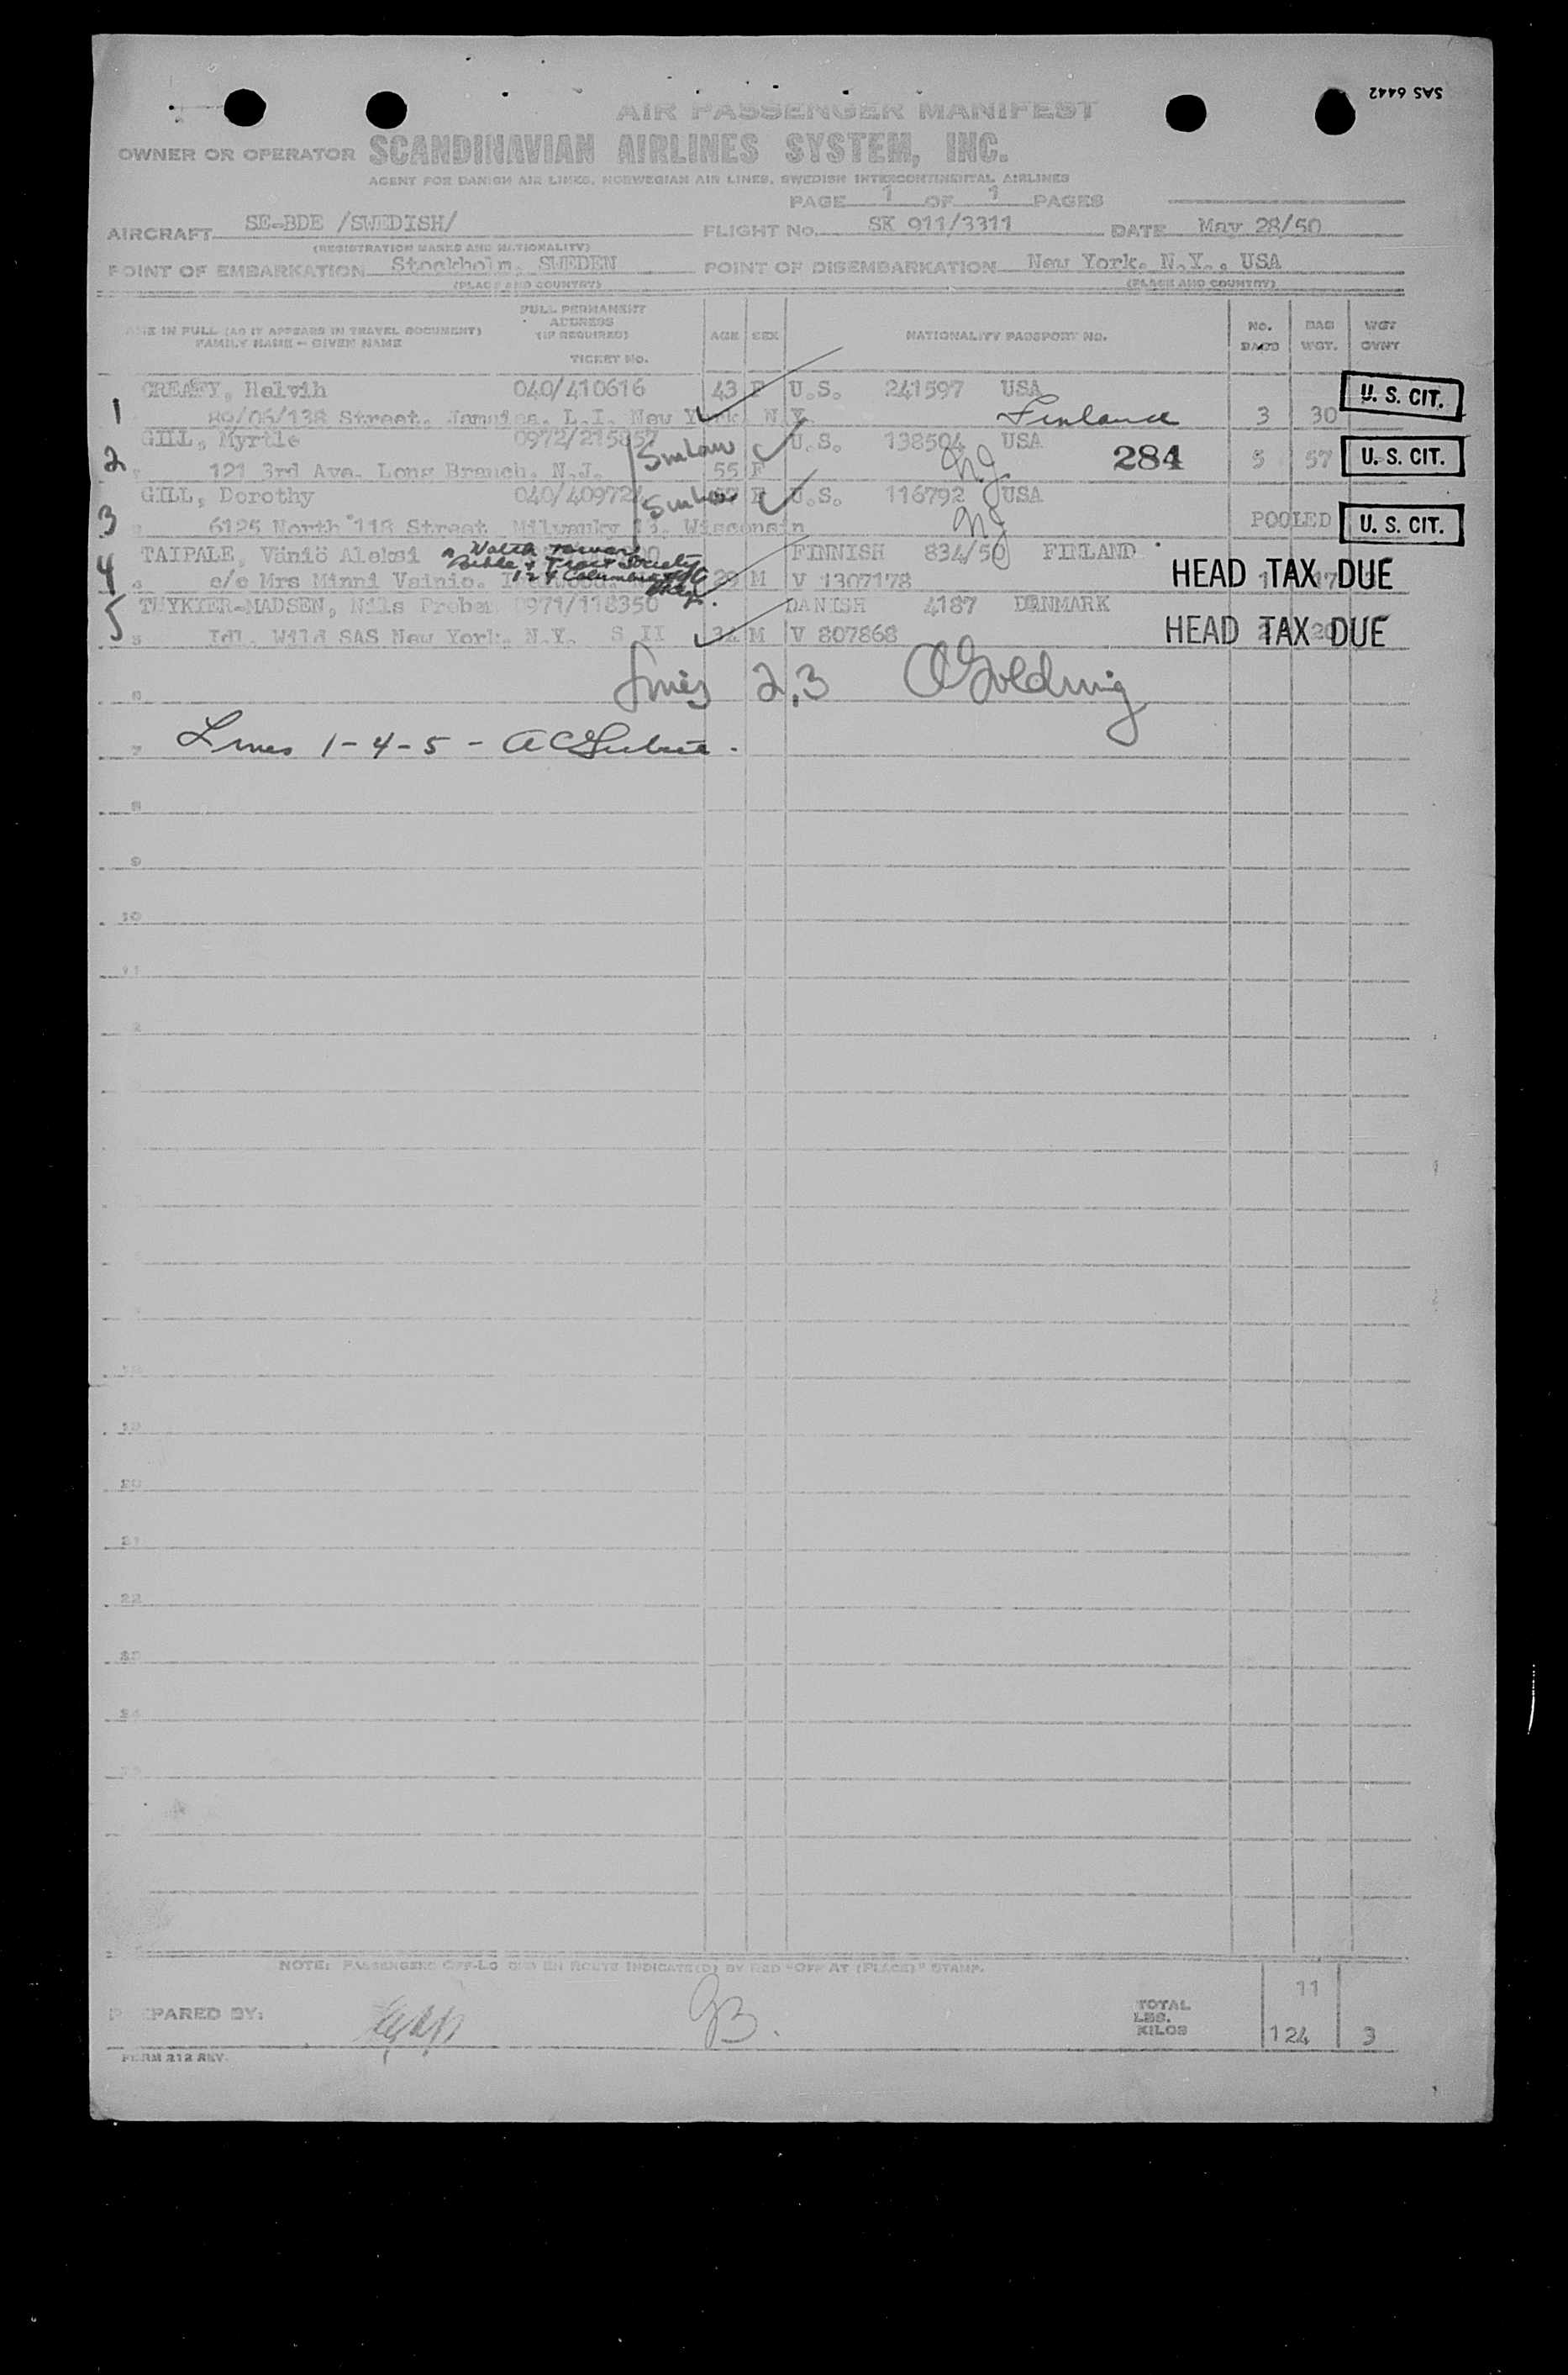 SAS 6442
AIR PASSENGER MANIFEST
OWNER OR OPERATOR SCANDINAVIAN AIRLINES SYSTEM, INC.
AGENT FOR DANISH AIR LINES, NORWEGIAN AIR LINES, SWEDISH INTERCONTINENTAL AIRLINES
PAGE 1 OF 1 PAGES
AIRCRAFT SE-BDE /SWEDISH/ FLIGHT No. SK 911/3311 DATE May 28/50
(REGISTRATION MARKS AND NATIONALITY)
POINT OF EMBARKATION Stockholm, SWEDEN POINT OF DISEMBARKATION New York, N.Y., USA
(PLACE AND COUNTRY) (PLACE AND COUNTRY)
NAME IN FULL (AS IT APPEARS IN TRAVEL DOCUMENT) FAMILY NAME - GIVEN NAME FULL PERMANENT ADDRESS (IF REQUIRED) TICKET No. AGE SEX NATIONALITY PASSPORT NO. No. BAGS BAG WGT. WGT OVWT
1 CREAFY, Helvih 040/410616 43 F U.S. 241597 USA U. S. CIT.
89/06/138 Street, Jamaica, L.I. New York, N.Y. Finland 3 30
2 GILL, Myrtle 0972/215857 U.S. 138504 USA 284 5 57 U. S. CIT.
121 3rd Ave. Long Branch, N.J. 55 F N.J.
3 GILL, Dorothy 040/40972 F U.S. 116792 USA
6125 North 118 Street Milwauky 13, Wisconsin NJ POOLED U. S. CIT.
4 TAIPALE, Väniö Aleksi FINNISH 834/50 FINLAND
Watch Tower
Bible & Tract Society
124 Columbia Hgts
c/o Mrs Minni Vainio, 29 M V 1307178 HEAD TAX DUE
5 THYKIER-MADSEN, Nils Preben 0971/118350 DANISH 4187 DENMARK
Idl. Wild SAS New York, N.Y. S II M V 807868 HEAD TAX DUE
6 Lines 2,3 Golding
7 Lines 1-4-5 -
8
9
10
11
19
20
21
22
23
24
NOTE: PASSENGERS OFF-LOADED EN ROUTE INDICATE(D) BY RED "OFF AT (PLACE)" STAMP.
PREPARED BY: TOTAL LBS. KILOS 11
124 3
FORM 212 REV.